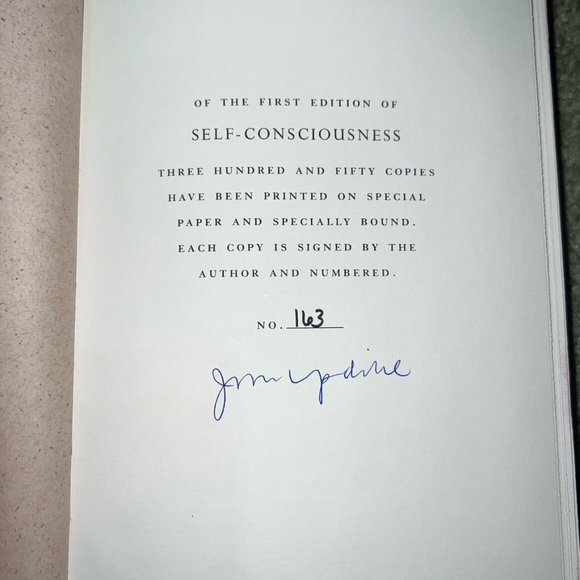 OF THE FIRST EDITION OF
SELF-CONSCIOUSNESS
THREE HUNDRED AND FIFTY COPIES
HAVE BEEN PRINTED ON SPECIAL
PAPER AND SPECIALLY BOUND.
EACH COPY IS SIGNED BY THE
AUTHOR AND NUMBERED.
NO. 163
John Updike